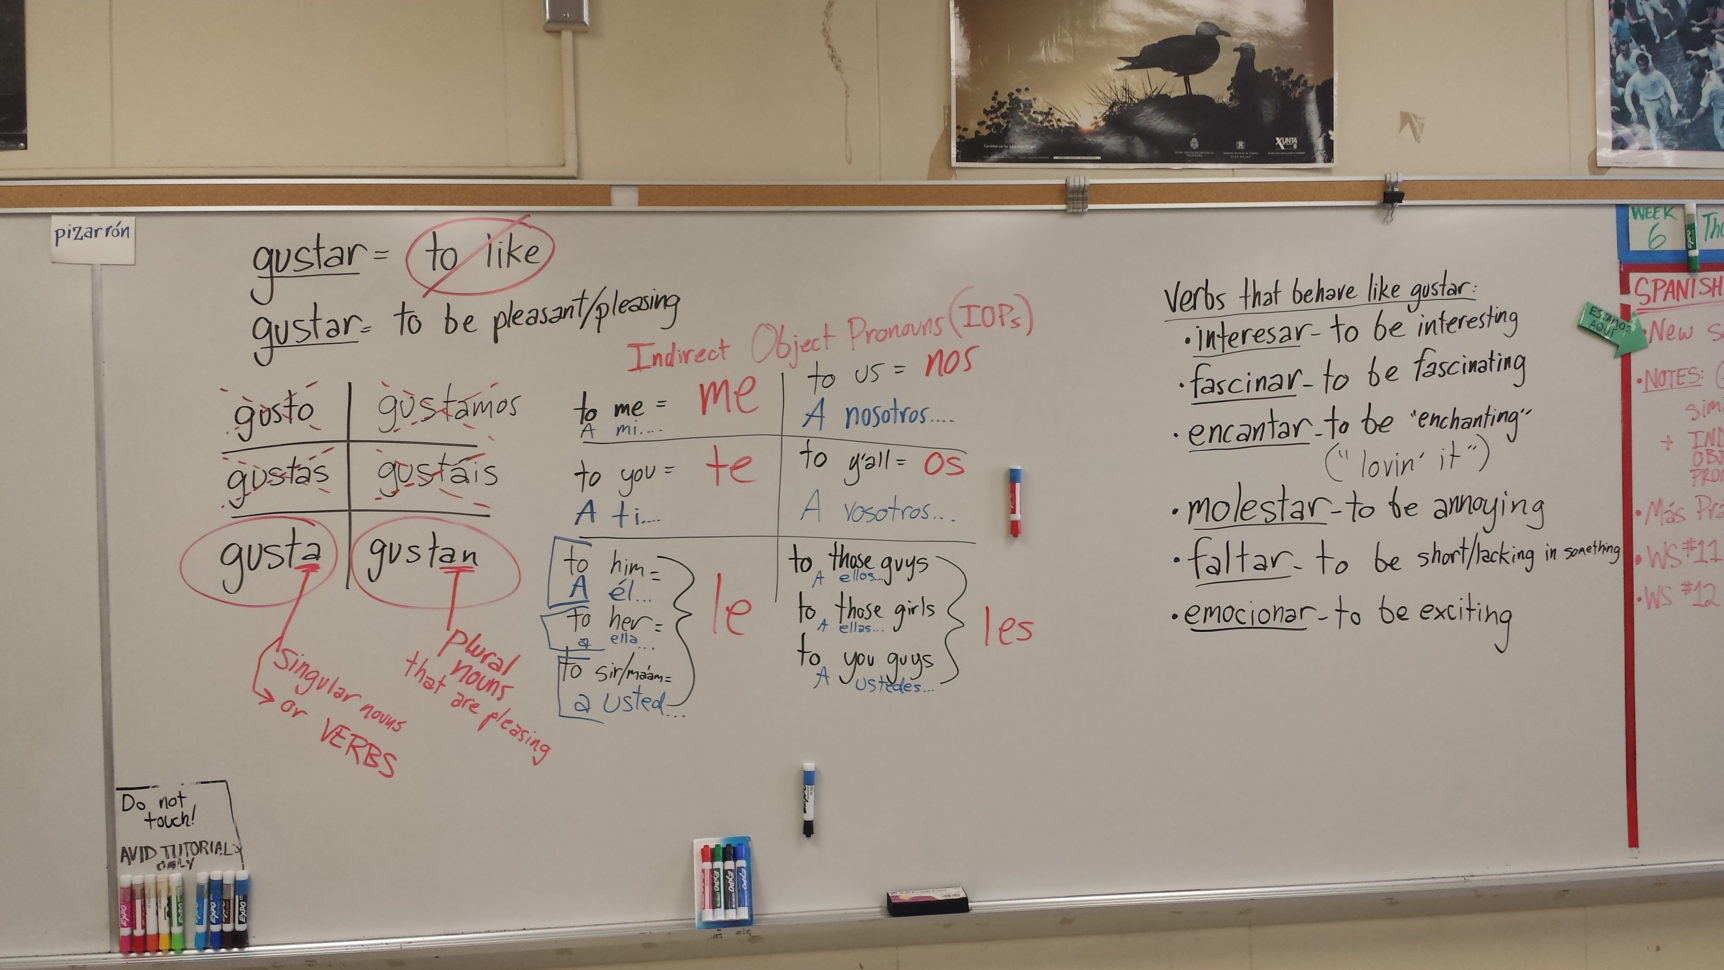 pizarrón
gustar = to like
gustar = to be pleasant/pleasing
gusto
gustamos
gustas
gustáis
gusta
gustan
singular nouns
or VERBS
plural
nouns
that are pleasing
Indirect Object Pronouns (IOPs)
to me = me
A mi....
to us = nos
A nosotros....
to you = te
A ti....
to y'all = os
A vosotros...
to him =
A él...
to her =
a ella...
to sir/ma'am =
a usted...
le
to those guys
A ellos...
to those girls
A ellas...
to you guys
A ustedes...
les
Verbs that behave like gustar:
• interesar - to be interesting
• fascinar - to be fascinating
• encantar - to be "enchanting"
("lovin' it")
• molestar - to be annoying
• faltar - to be short/lacking in something
• emocionar - to be exciting
WEEK
6
ESTAMOS
AQUÍ
SPANISH
• New
• NOTES:
+ IND
OBJ
PRO
• Más Pra
• WS #11
• WS #12
Do not
touch!
AVID TUTORIALS
ONLY
EXPO
XUNTA